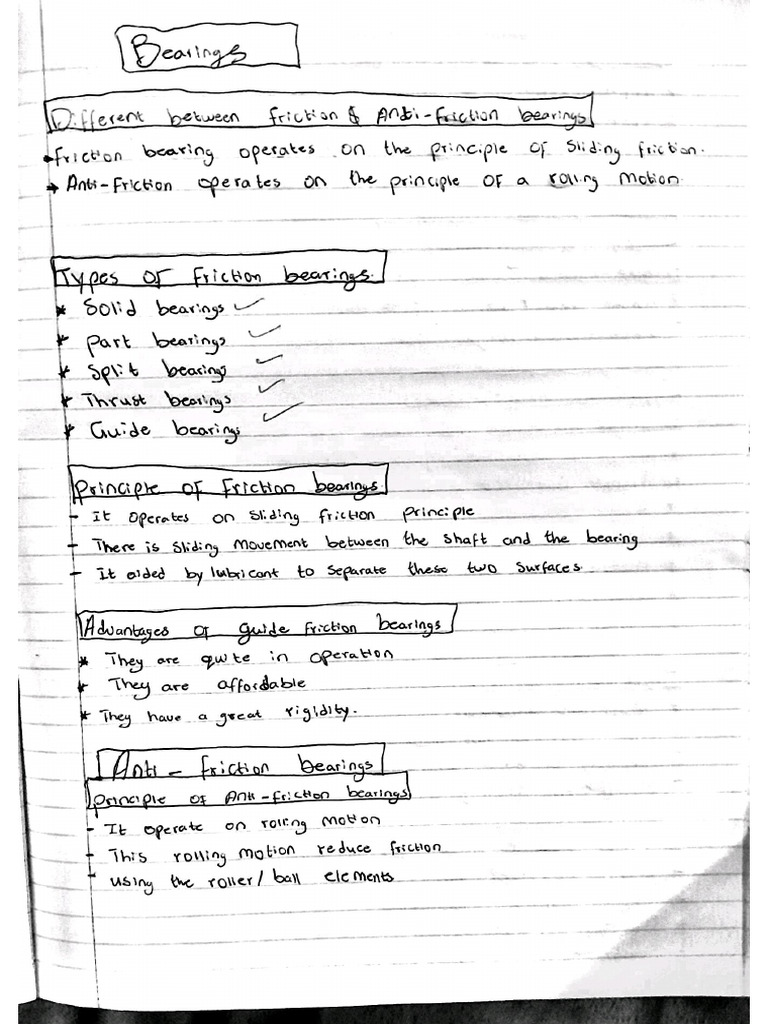 Bearings
Different between friction & Anti-friction bearings
→ friction bearing operates on the principle of sliding friction.
→ Anti-friction operates on the principle of a rolling motion.
Types of friction bearings.
* Solid bearings ✓
* Part bearings ✓
* Split bearings ✓
* Thrust bearings ✓
* Guide bearings ✓
Principle of friction bearings.
- It operates on sliding friction principle
- There is sliding movement between the shaft and the bearing
- It aided by lubricant to separate these two surfaces.
Advantages of guide friction bearings
* They are quite in operation
* They are affordable
* They have a great rigidity.
Anti - friction bearings
Principle of Anti-friction bearings
- It operate on rolling motion
- This rolling motion reduce friction
- using the roller/ball elements